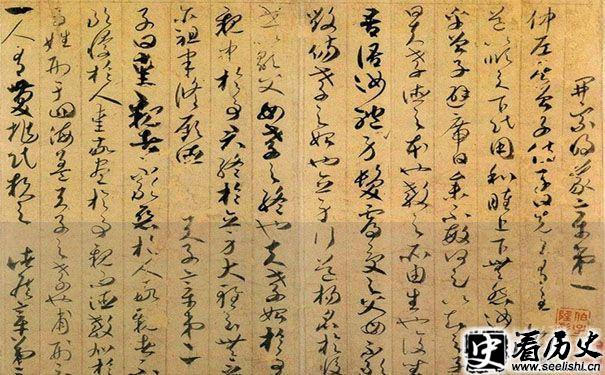 開宗明義章第一
仲尼居曾子侍子曰先王有至
道以順天下民用和睦上下無怨汝
乎曾子避席曰參不敏何足以知
曰夫孝德之本也教之所由生也復坐
吾語汝身體髮膚受之父母不敢
毀傷孝之始也立身行道揚名於後
世以顯父母孝之終也夫孝始於事
親中於事君終於立身大雅云無念
尔祖聿脩厥德 天子章第二
子曰愛親者不敢惡於人敬親者不
敢慢於人愛敬盡於事親而德教加於
百姓刑于四海蓋天子之孝也甫刑云
一人有慶兆民賴之 諸侯章第三
史看历史
www.seelishi.cn